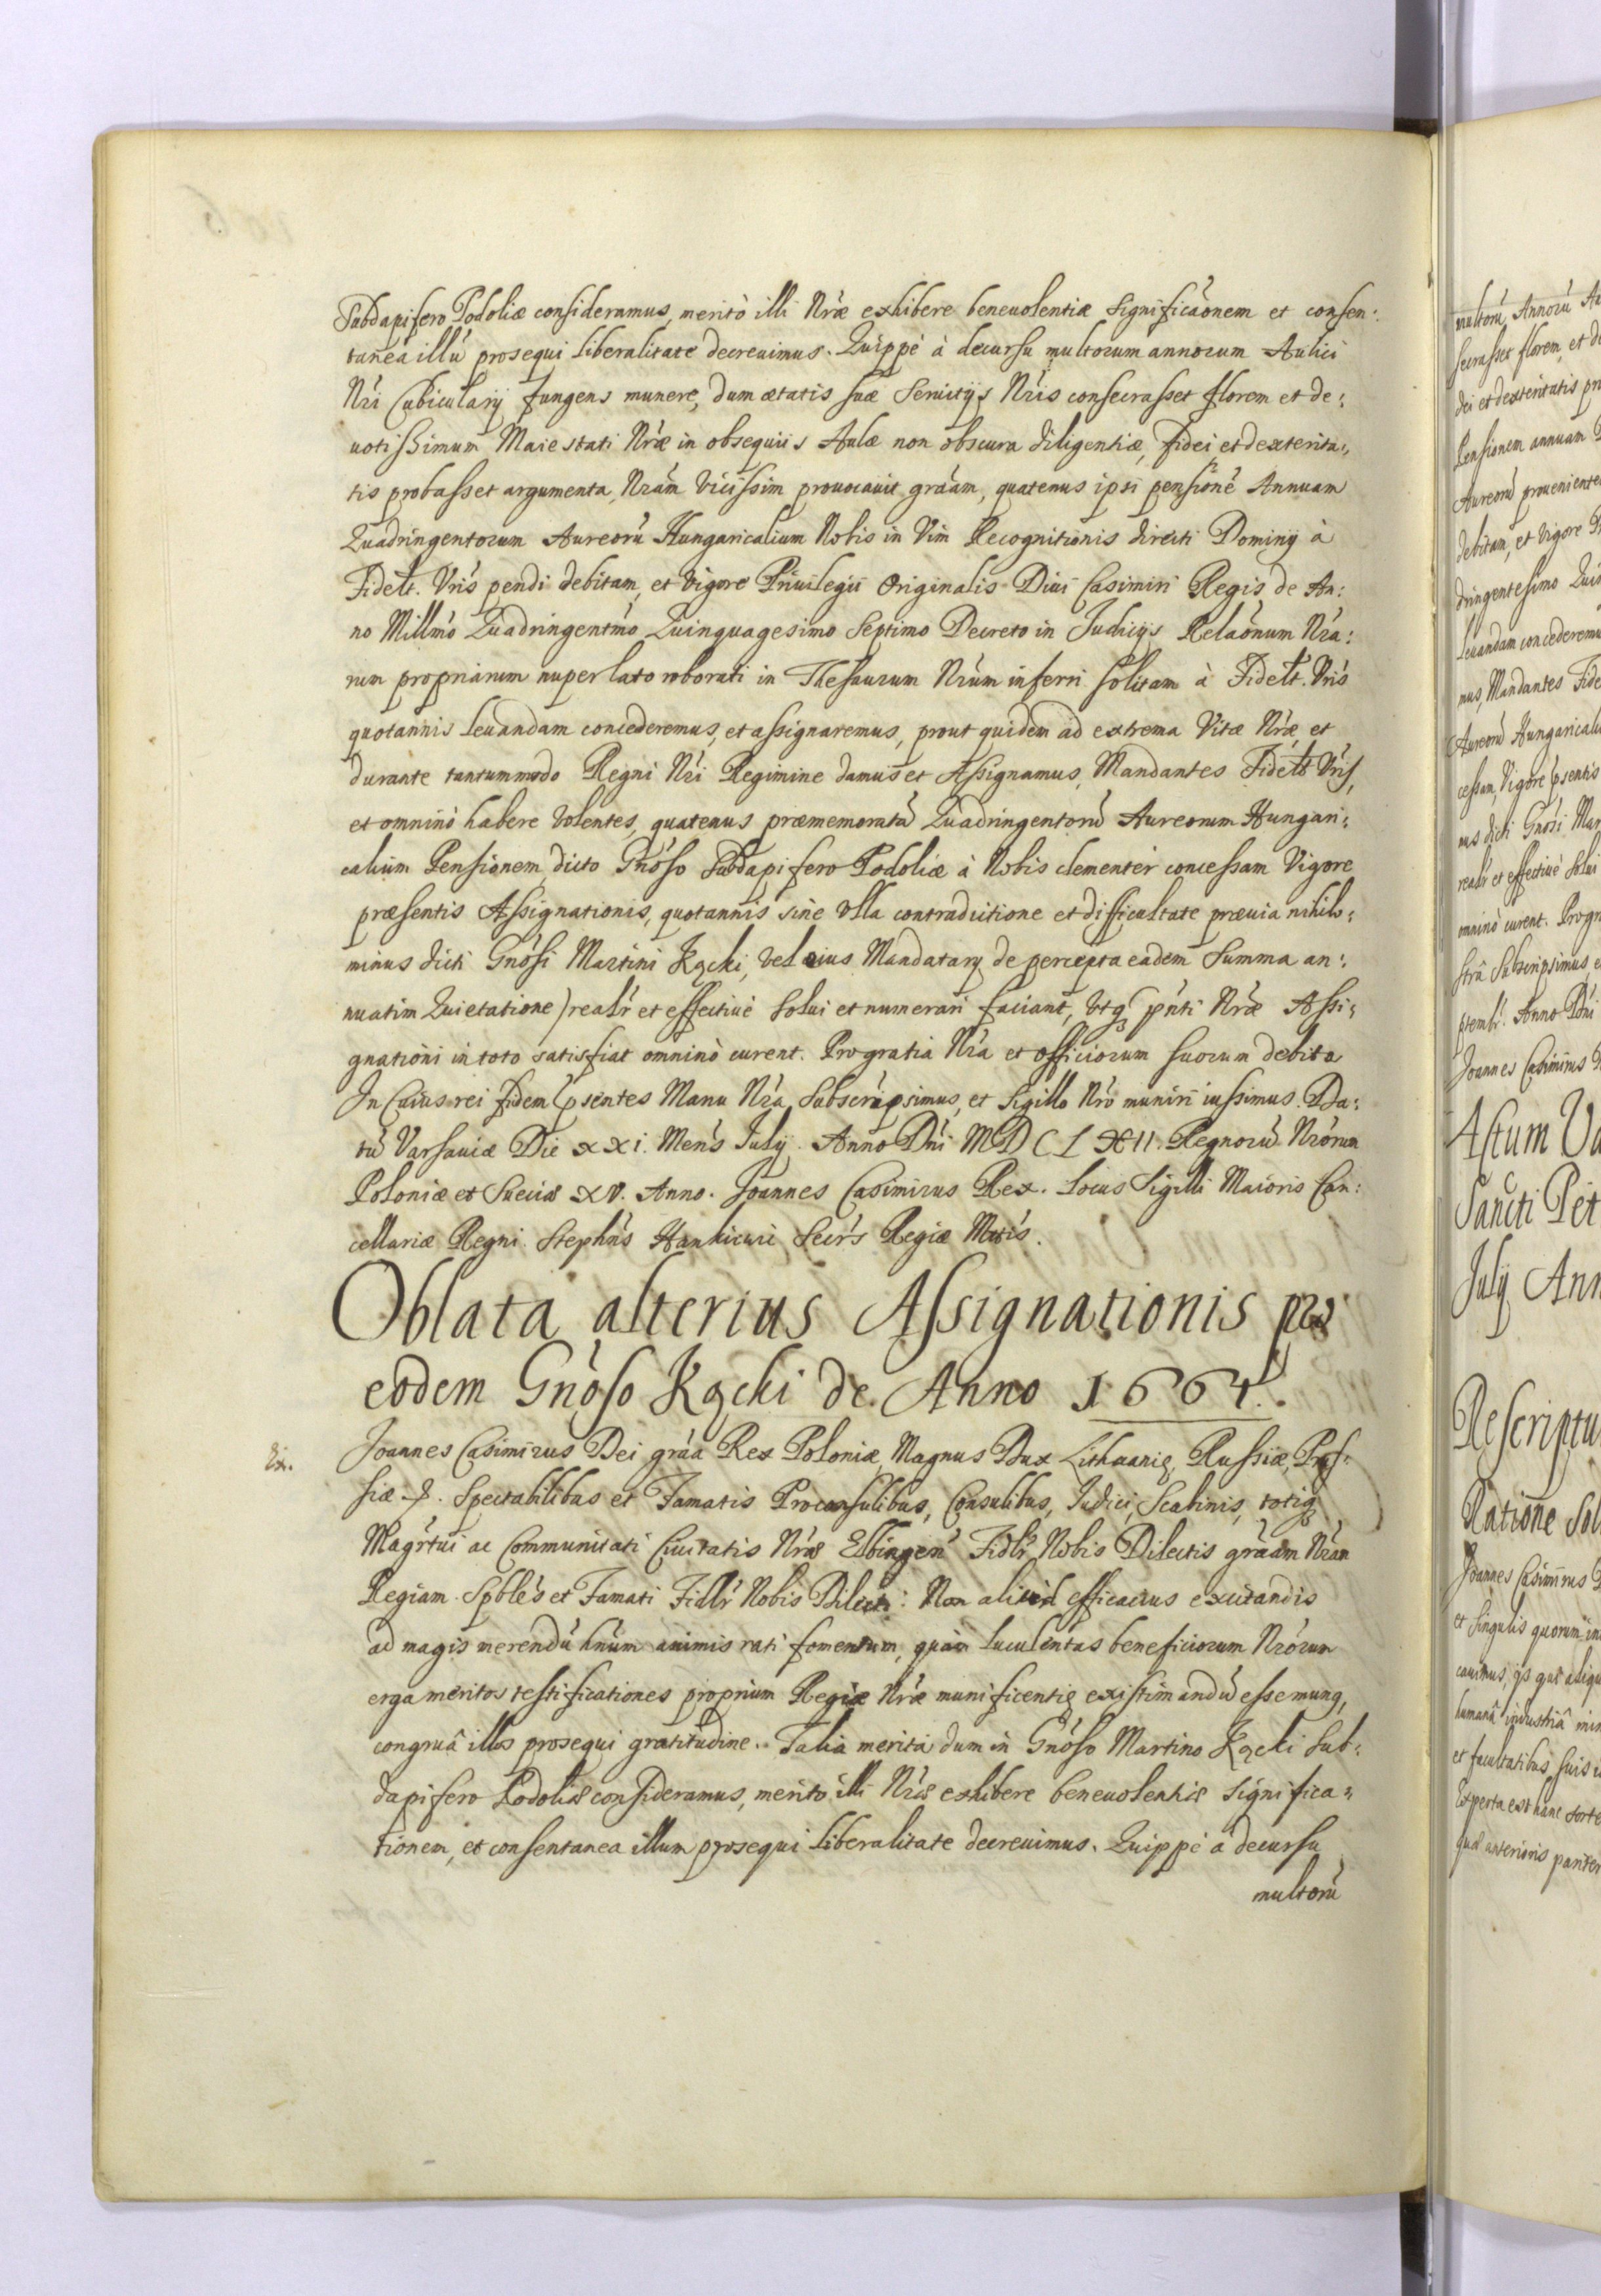 Subdapifero Podoliæ consideramus, meritò illi Nræ exhibere beneuolentiæ significãonem et consen:
tanea illũ prosequi liberalitate decreuimus. Quippè à decursu multorum annorum Aulici
Nri Cubicularij fungens munere, dum ætatis suæ Seruitijs Nris consecrasset florem et de:
uotissimum Maiestati Nræ in obsequiis Aulæ non obscura diligentiæ, fidei, et dexterita:
tis probasset argumenta, Nram vicissim prouocauit grãam, quatenus ipsi pensionẽ Annuam
Quadringentorum Aureorũ Hungaricalium Nobis in Vim Recognitionis directi Dominij à
Fidelt. Vris pendi debitam, et vigore Priuilegii Originalis Diui Casimiri Regis de An:
no Millmo Quadringentmo Quinquagesimo Septimo Decreto in Judicijs Relãonum Nra:
rum proprianum nuper lato roborati in Thesaurum Nrum inferri solitam à Fidelt. Vris
quotannis leuandam concederemus, et assignaremus, prout quidem ad extrema Vitæ Nræ et
durante tantummodo Regni Nri Regimine damus et Assignamus, Mandantes Fidelt Vris,
et omninò habere volentes, quatenus præmemoratã Quadringentorũ Aureorum Hungari:
calium Pensionem, dicto Gnoso Subdapifero Podoliæ à Nobis clementer concessam Vigore
præsentis Assignationis, quotannis sine vlla contradictione et difficultate præuia nihilo:
minus dicti Gnosi Martini Kącki, vel eius Mandatarij de percepta eadem Summa an:
nuatim Quietatione) realr et effectiuè solui et numerari faciant, vtq3 pñti Nræ Assi:
gnationi in toto satisfiat omninò curent. Pro gratia Nra et officiorum suorum debito
In Cuius rei fidem psentes Manu Nra Subscripsimus, et Sigillo Nro muniri iussimus. Da:
tũ Varsauiæ Die XXI. Mens July. Anno Dni MDCLXII. Regnorũ Nrorum
Poloniæ et Sueciæ XV. Anno. Joannes Casimirus Rex. Locus Sigilli Maioris Can:
cellariæ Regni. Stephns Hankiewic Secrs Regiæ Mtis.
Oblata alterius Assignationis pro
eodem Gnoso Kącki de Anno 1664.
Joannes Casimirus Dei grãa Rex Poloniæ, Magnus Dux Lithuaniæ, Russiæ, Prus:
siæ &. Spectabilibus et Famatis Proconsulibus, Consulibus, Iudici, Scabinis, totiq3
Magrtui ac Communitati Ciuitatis Nræ Elbingen Fidlr Nobis Dilectis grãam Nram
Regiam. Spbles et Famati Fidlr Nobis Dilecti: Non aliud efficacius excitandis
ad magis merendũ hnum animis rati fomentum, quàm luculentas beneficiorum Nrorum
erga meritos testificationes proprium Regiæ Nræ munificentię existimandũ esse munq,
congruâ illos prosequi gratitudine. Talia merita dum in Gnoso Martino Kącki Sub:
dapifero Podoliæ consideramus, meritò illi Nræ exhibere beneuolentiæ significa:
tionem, et consentanea illum prosequi liberalitate decreuimus. Quippè a decursu
multorũ